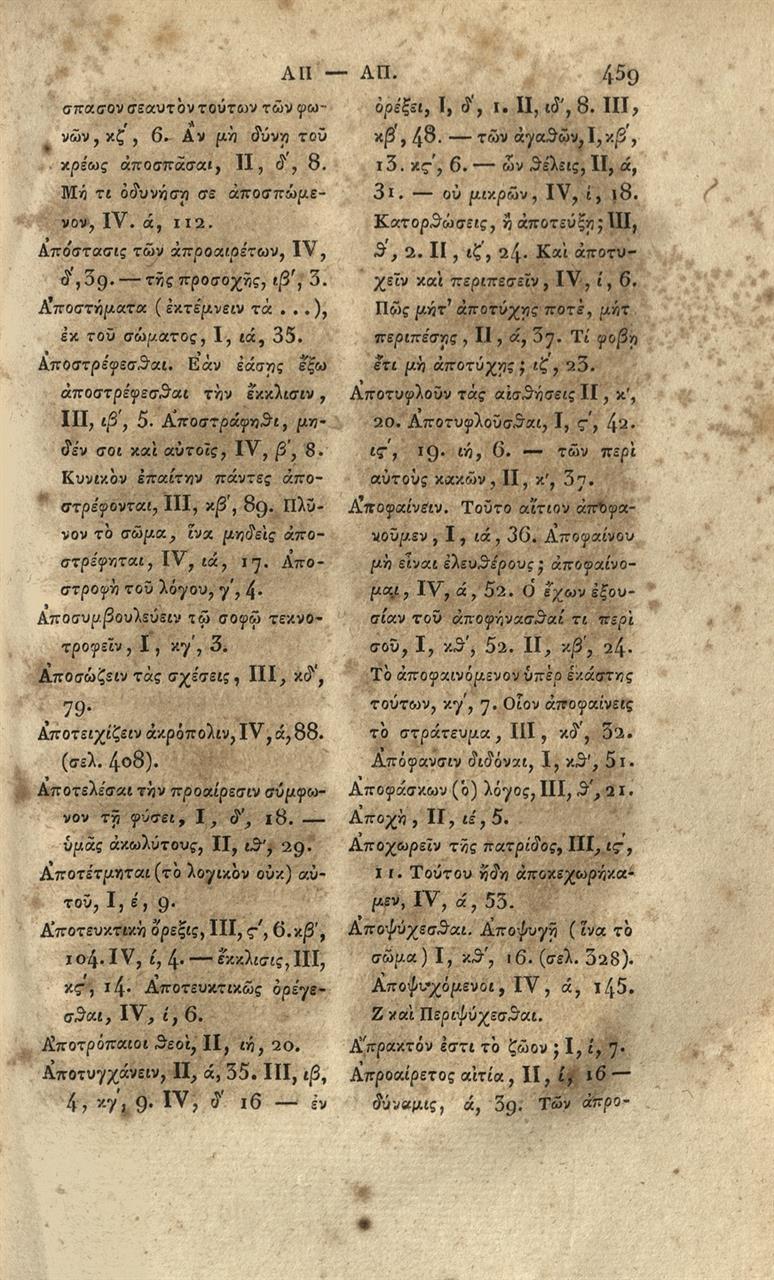 ΑΠ — ΑΠ. 459
σπασον σεαυτὸν τούτων τῶν φω-
νῶν, κζ΄, 6. Ἂν μὴ δύνῃ τοῦ
κρέως ἀποσπᾶσαι, II, δ΄, 8.
Μή τι ὀδυνήσῃ σε ἀποσπώμε-
νον, IV. ά, 112.
Ἀπόστασις τῶν ἀπροαιρέτων, IV,
δ΄, 39. — τῆς προσοχῆς, ιβ΄, 3.
Ἀποστήματα (ἐκτέμνειν τὰ ...),
ἐκ τοῦ σώματος, I, ιά, 35.
Ἀποστρέφεσθαι. Ἐὰν ἐάσῃς ἔξω
ἀποστρέφεσθαι τὴν ἔκκλισιν,
III, ιβ΄, 5. Ἀποστράφηθι, μη-
δέν σοι καὶ αὐτοῖς, IV, β΄, 8.
Κυνικὸν ἐπαίτην πάντες ἀπο-
στρέφονται, III, κβ΄, 89. Πλῦ-
νον τὸ σῶμα, ἵνα μηδεὶς ἀπο-
στρέφηται, IV, ιά, 17. Ἀπο-
στροφὴ τοῦ λόγου, γ΄, 4.
Ἀποσυμβουλεύειν τῷ σοφῷ τεκνο-
τροφεῖν, I, κγ΄, 3.
Ἀποσώζειν τὰς σχέσεις, III, κδ΄,
79.
Ἀποτειχίζειν ἀκρόπολιν, IV, ά, 88.
(σελ. 408).
Ἀποτελέσαι τὴν προαίρεσιν σύμφω-
νον τῇ φύσει, I, δ΄, 18. —
ὑμᾶς ἀκωλύτους, II, ιθ΄, 29.
Ἀποτέτμηται (τὸ λογικὸν οὐκ) αὐ-
τοῦ, I, έ, 9.
Ἀποτευκτικὴ ὄρεξις, III, ς΄, 6. κβ΄,
104. IV, ί, 4. — ἔκκλισις, III,
κς΄, 14. Ἀποτευκτικῶς ὀρέγε-
σθαι, IV, ί, 6.
Ἀποτρόπαιοι θεοὶ, II, ιή, 20.
Ἀποτυγχάνειν, II, ά, 35. III, ιβ,
4, κγ΄, 9. IV, δ΄ 16 — ἐν
ὀρέξει, I, δ΄, 1. II, ιδ΄, 8. III,
κβ΄, 48. — τῶν ἀγαθῶν, I, κβ΄,
13. κς΄, 6. — ὧν θέλεις, II, ά,
31. — οὐ μικρῶν, IV, ί, 18.
Κατορθώσεις, ἢ ἀποτεύξῃ; III,
θ΄, 2. II, ιζ΄, 24. Καὶ ἀποτυ-
χεῖν καὶ περιπεσεῖν, IV, ί, 6.
Πῶς μήτ' ἀποτύχῃς ποτὲ, μήτ
περιπέσῃς, II, ά, 37. Τί φοβῇ
ἔτι μὴ ἀποτύχῃς; ιζ΄, 23.
Ἀποτυφλοῦν τὰς αἰσθήσεις II, κ΄,
20. Ἀποτυφλοῦσθαι, I, ς΄, 42.
ις΄, 19. ιή, 6. — τῶν περὶ
αὐτοὺς κακῶν, II, κ΄, 37.
Ἀποφαίνειν. Τοῦτο αἴτιον ἀποφα-
νοῦμεν, I, ιά, 36. Ἀποφαίνου
μὴ εἶναι ἐλευθέρους; ἀποφαίνο-
μαι, IV, ά, 52. Ὁ ἔχων ἐξου-
σίαν τοῦ ἀποφήνασθαί τι περὶ
σοῦ, I, κθ΄, 52. II, κβ΄, 24.
Τὸ ἀποφαινόμενον ὑπὲρ ἑκάστης
τούτων, κγ΄, 7. Οἷον ἀποφαίνεις
τὸ στράτευμα, III, κδ΄, 32.
Ἀπόφανσιν διδόναι, I, κθ΄, 51.
Ἀποφάσκων (ὁ) λόγος, III, θ΄, 21.
Ἀποχὴ, II, ιέ, 5.
Ἀποχωρεῖν τῆς πατρίδος, III, ις΄,
11. Τούτου ἤδη ἀποκεχωρήκα-
μεν, IV, ά, 53.
Ἀποψύχεσθαι. Ἀποψυγῇ (ἵνα τὸ
σῶμα) I, κθ΄, 16. (σελ. 328).
Ἀποψυχόμενοι, IV, ά, 145.
Ζ καὶ Περιψύχεσθαι.
Ἄπρακτόν ἐστι τὸ ζῶον; I, ί, 7.
Ἀπροαίρετος αἰτία, II, ί, 16 —
δύναμις, ά, 39. Τῶν ἀπρο-